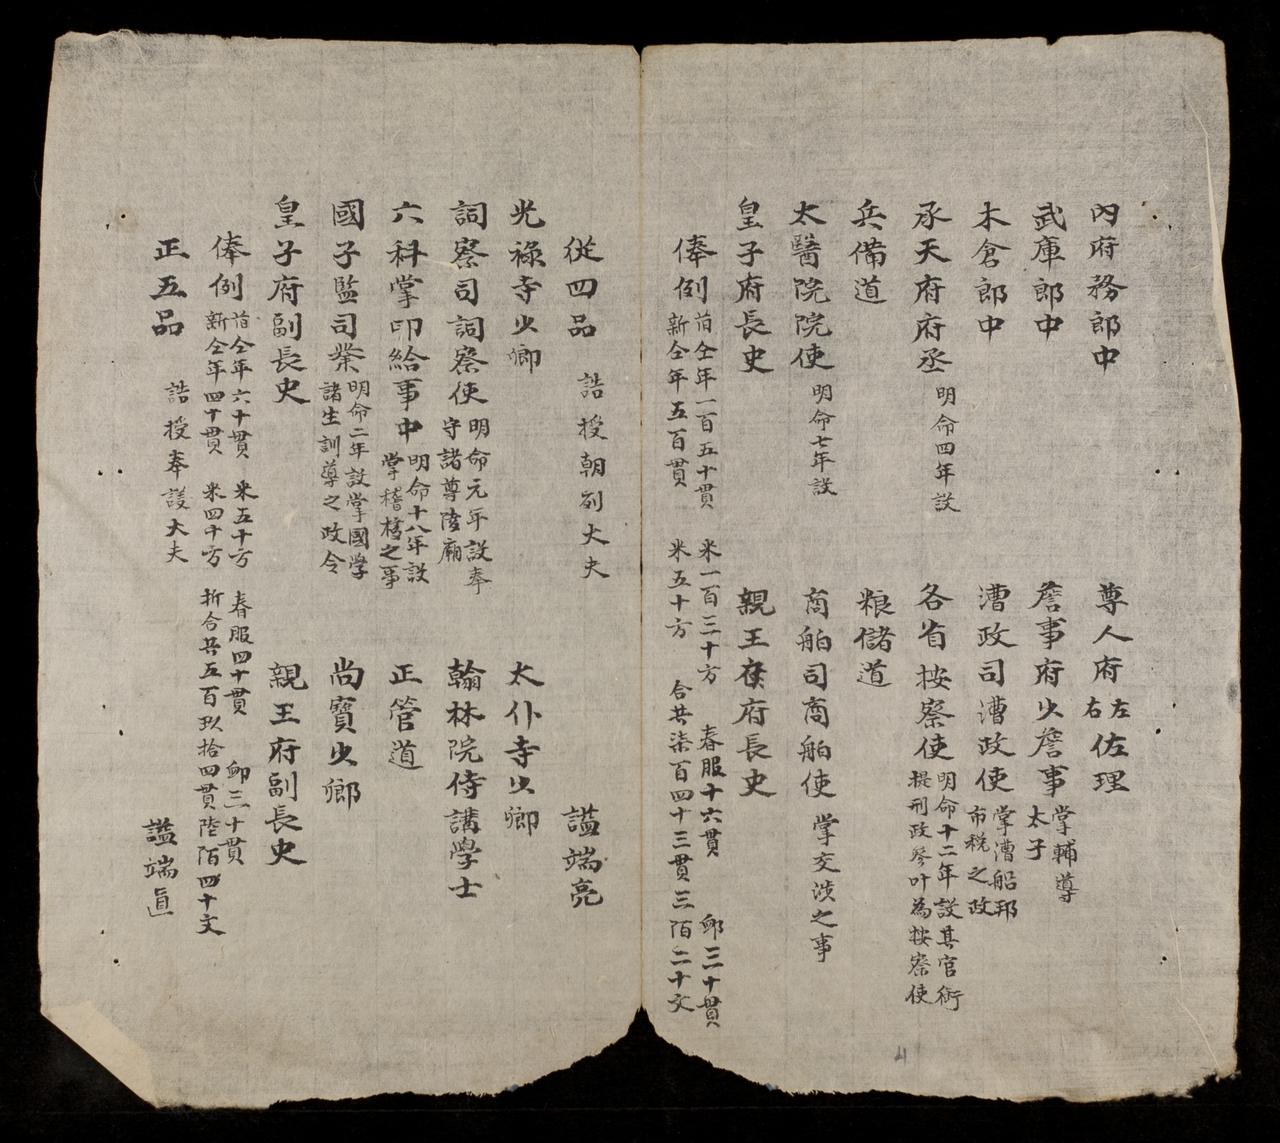 內府務郎中 尊人府左右佐理
武庫郎中 詹事府少詹事 掌輔導太子
木倉郎中 漕政司漕政使 掌漕船、市稅之政
承天府府丞 明命四年設 各省按察使 明命十二年設其官術提刑政參叶為按察使
兵備道 粮儲道
太醫院院使 明命七年設 商舶司商舶使 掌交涉之事
皇子府長史 親王府長史
俸例 前仝年一百五十貫 米一百三十方 春服十六貫 䘏三十貫
新仝年五百貫 米五十方 合共柒百四十三貫三陌二十文
從四品 誥授朝列大夫 諡端亮
光祿寺少卿 太仆寺少卿
詞察司詞察使 明命元年設奉守諸尊陵廟 翰林院侍講學士
六科掌印給事中 明命十八年設掌稽核之事 正管道
國子監司業 明命二年設掌國學諸生訓導之政令 尚寶少卿
皇子府副長史 親王府副長史
俸例 前仝年六十貫 米五十方 春服四十貫 䘏三十貫
新仝年四十貫 米四十方 折合共五百玖拾四貫陸陌四十文
正五品 誥授奉議大夫 諡端直